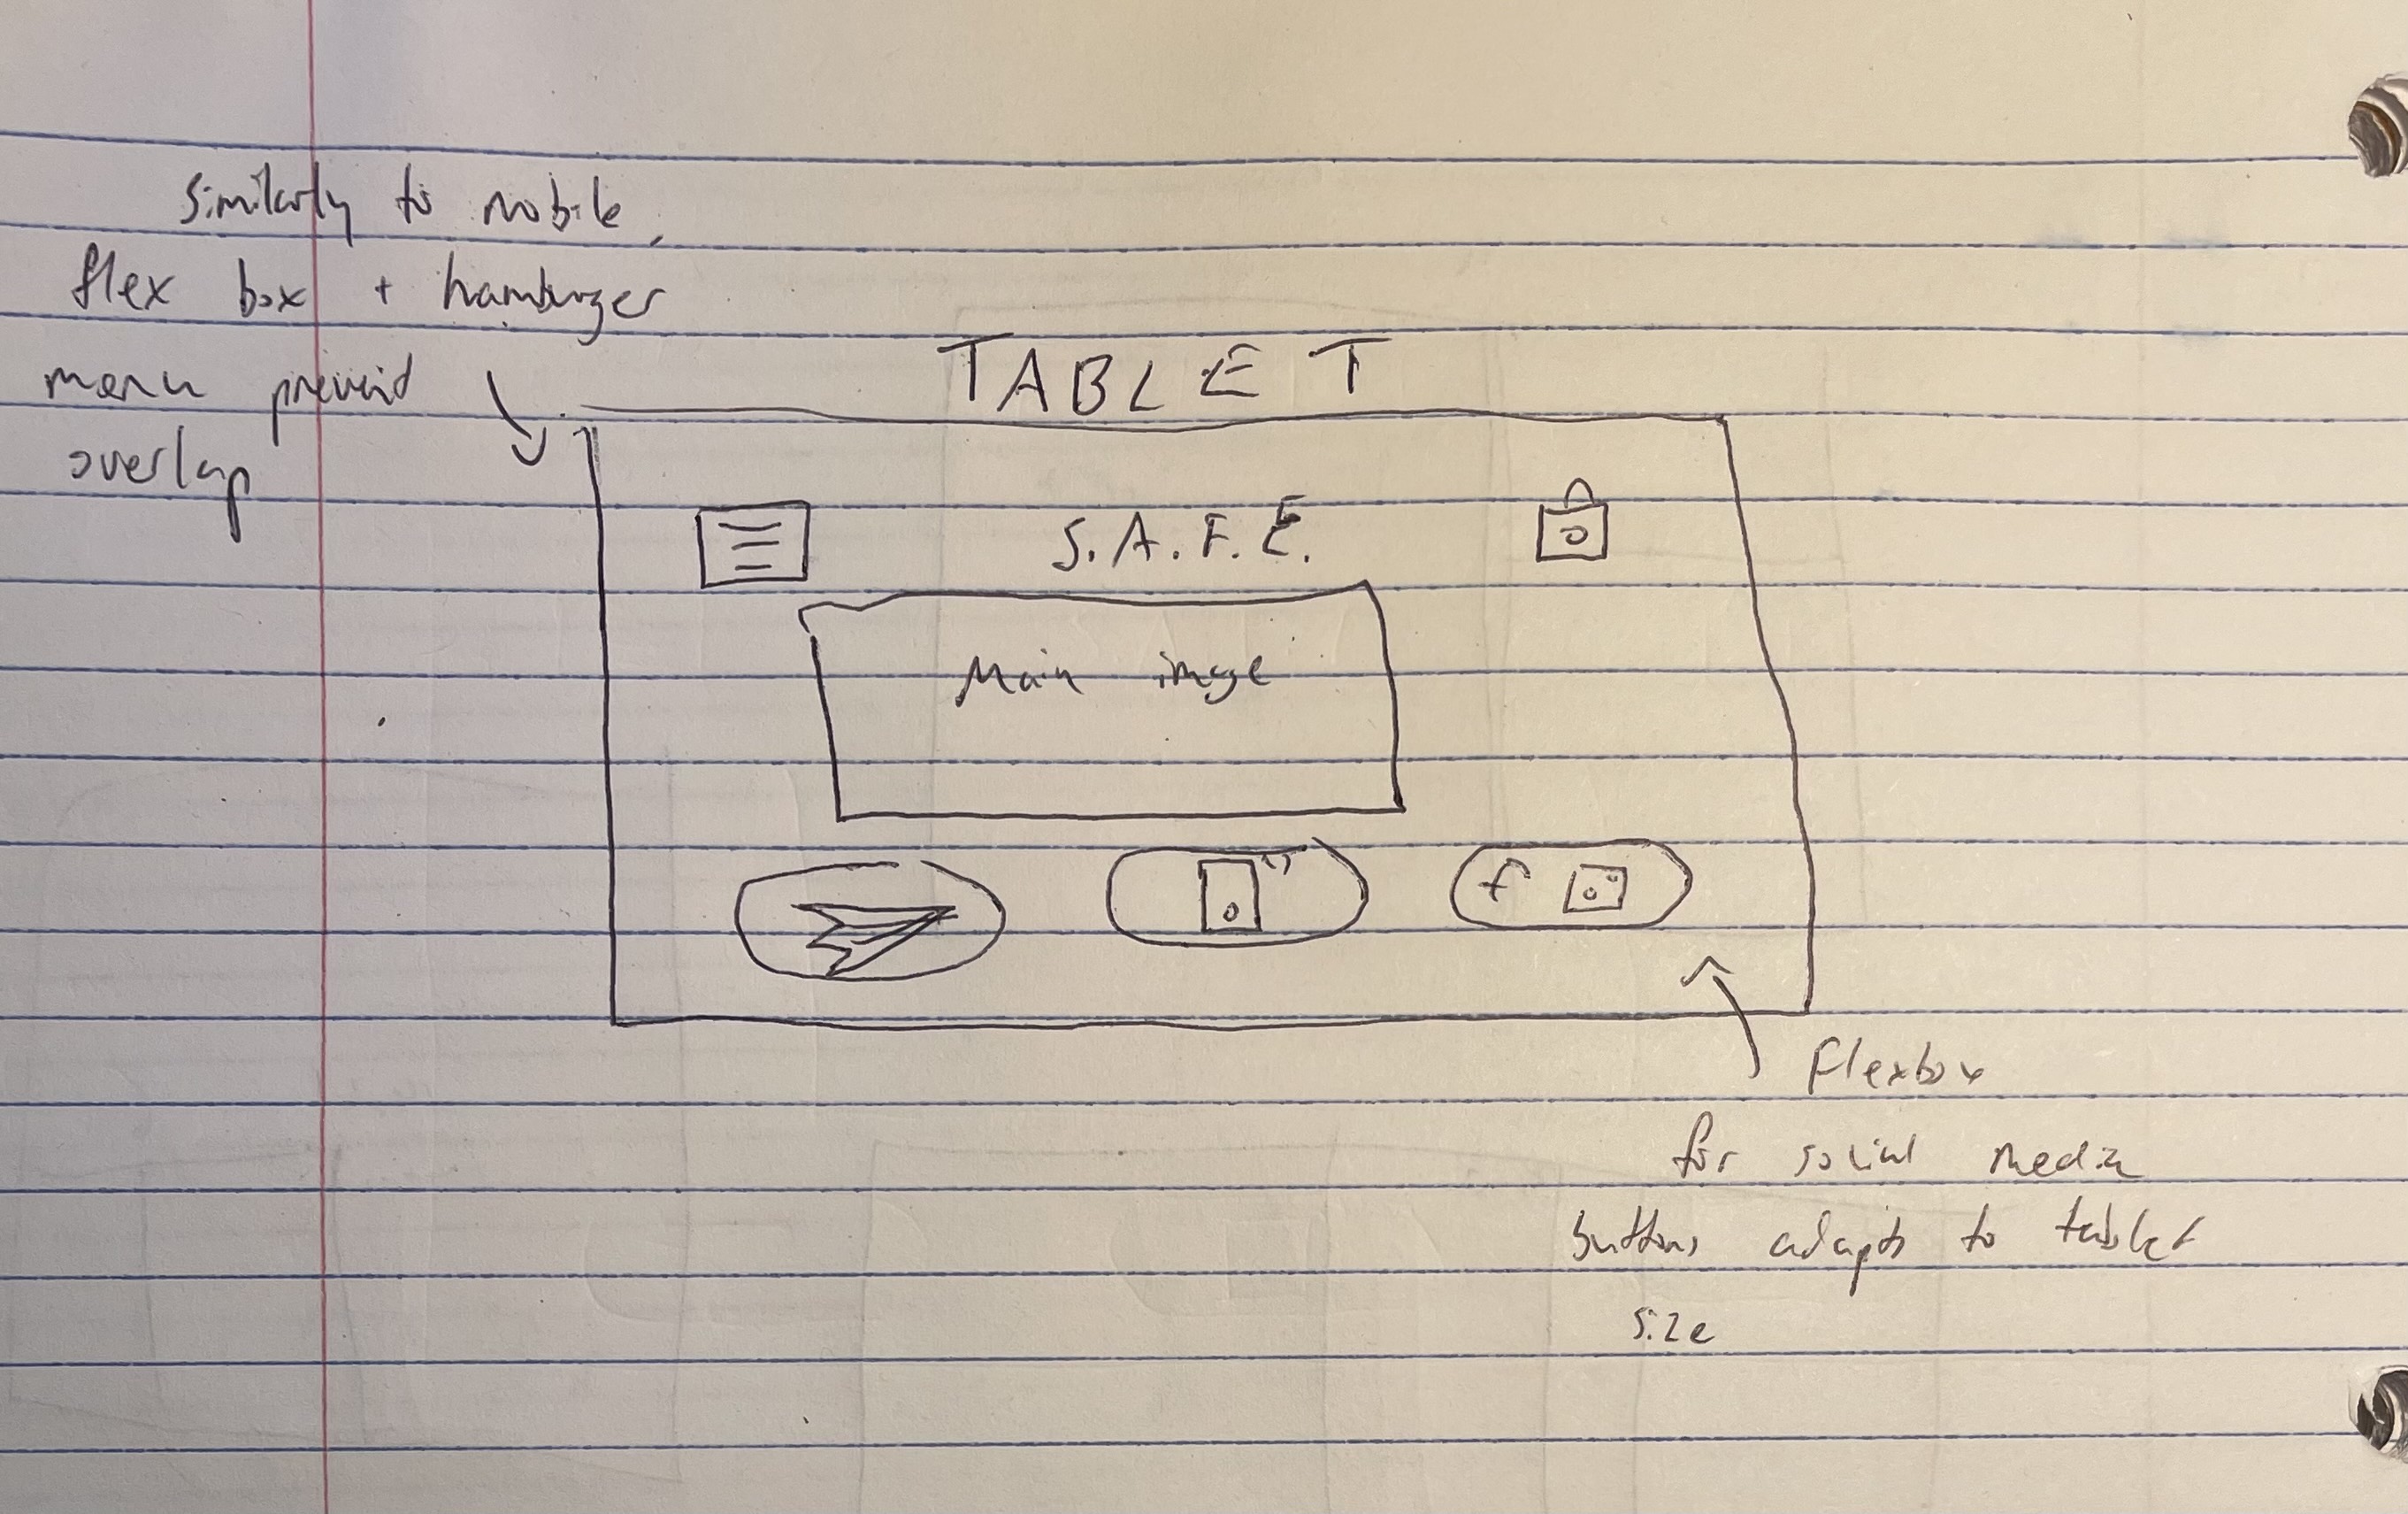 Similarly to mobile,
flex box + hamburger
menu prevent
overlap
TABLET
S.A.F.E.
Main image
f
Flexbox
for social media
buttons adapts to tablet
size